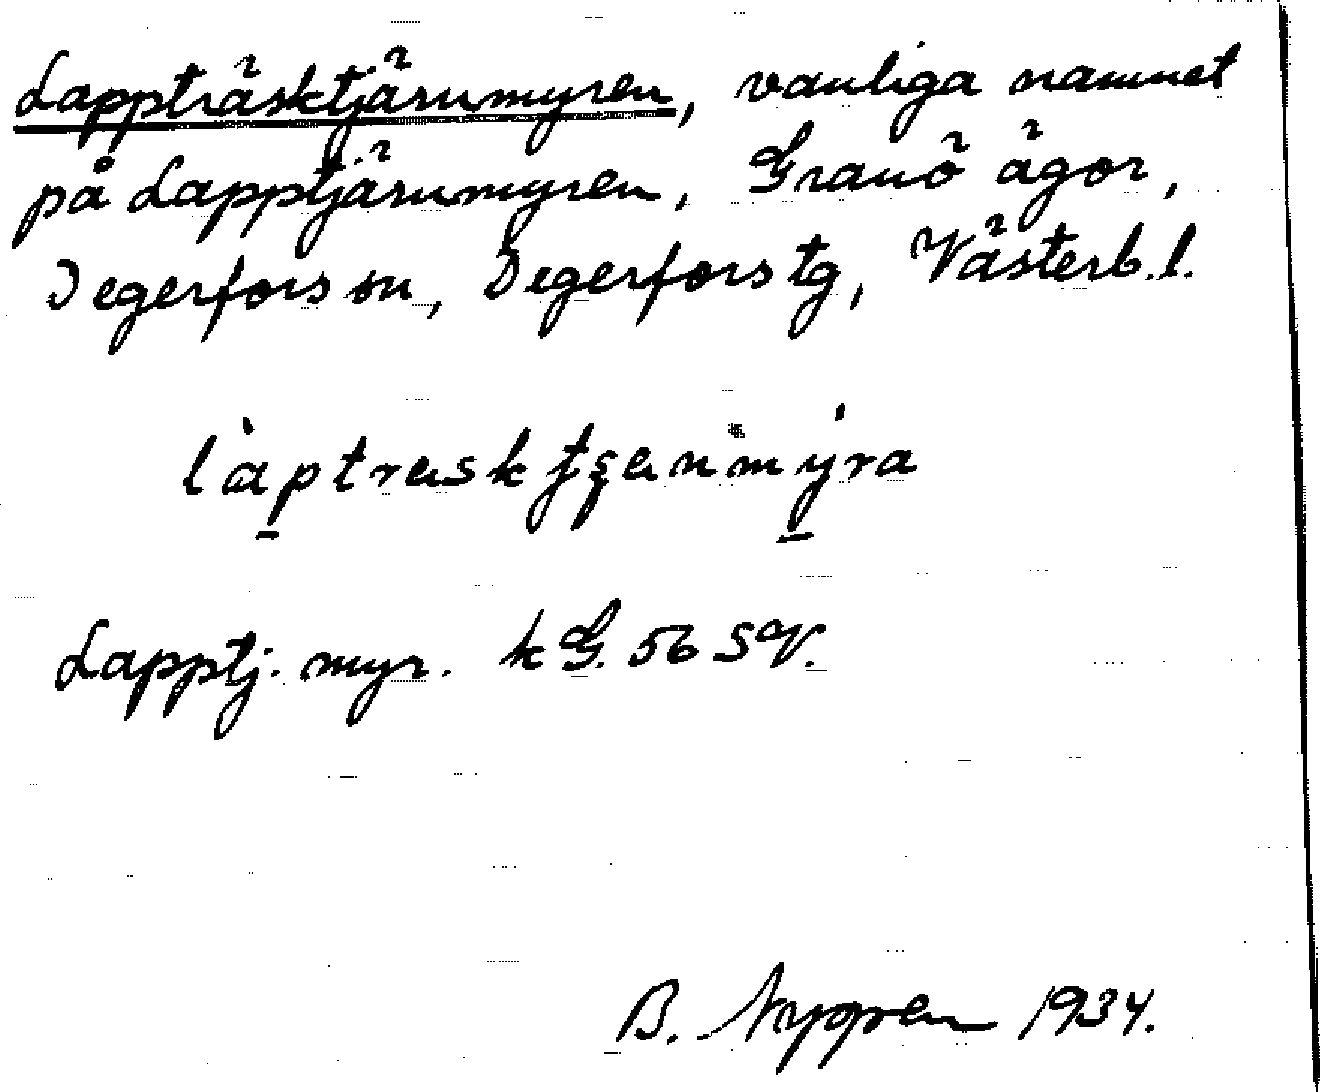 Lappträsktjärnmyren, vanliga namnet
på Lapptjärnmyren, Granö ägor,
Degerfors sn, Degerfors tg, Västerb.l.
Lapptj. myr. k G. 56 SV.
B. 1934.